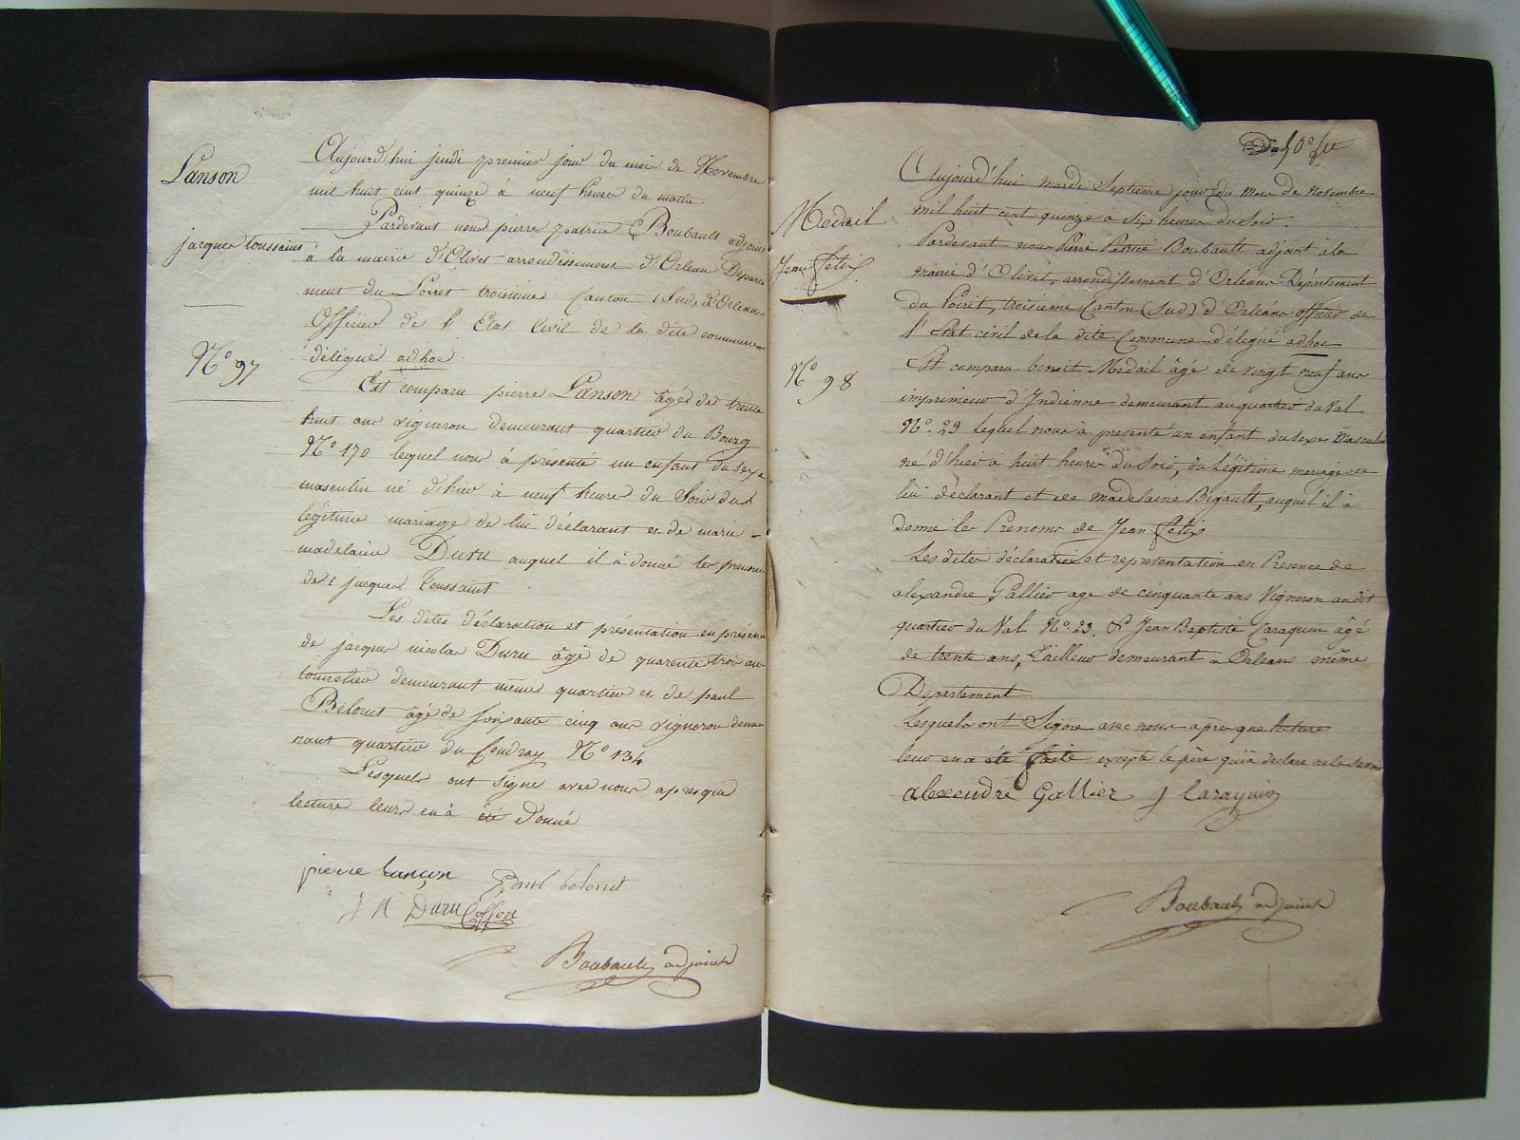 Lanson
jacques toussaint
N° 97
Aujourd'hui jeudi premier jour du moi de Novembre
mil huit cent quinze à neuf heure du matin
Pardevant nous pierre patrice Boubault adjoint
à la mairie d'Olivet arrondissement d'Orléans Departe
ment du Loiret troisieme Canton (Sud) d'Orleans
Officier de l'Etat Civil de la dite commune
délégué adhoc
Est comparu pierre Lanson âgé de trente
huit ans vigneron demeurant quartier du Bourg
N° 170 lequel nous à présenté un enfant du sexe
masculin né d'hier à neuf heure du Soir du
légitime mariage de lui déclarant et de marie
madelaine Duru auquel il à donné les prenoms
de jacques Toussaint
Les dites déclaration et presentation en présence
de jacques nicolas Duru âgé de quarente trois ans
tonnelier demeurant même quartier et de paul
Belouet âgé de soixante cinq ans vigneron demeu
rant quartier du Coudray N° 134
Lesquels ont signé avec nous apres que
lecture leurs en à été Donné
pierre lançon Paul belouet
J N Duru Cosson
Boubault adjoint
50e fe
Medail
Jean Felix
N° 98
Aujourd'hui mardi Septieme jour du Mois de Novembre
mil huit cent quinze à Six heures du Soir
Pardevant nous Pierre Patrice Boubault adjoint à la
mairie d'Olivet, arrondissement d'Orléans Département
du Loiret, troisieme Canton (Sud) d'Orléans officier de
l'état civil de la dite Commune délégué adhoc
Est comparu benoit Medail âgé de vingt neuf ans
imprimeur d'Indienne demeurant au quartier du Val
N° 29 lequel nous à presenté un enfant du sexe Masculin
né d'hier à huit heures du Soir, du Légitime mariage de
lui déclarant et de madelaine Bigault, auquel il à
donné les Prenoms de Jean Felix
Les dites déclaration et representation en Presence de
alexandre Gallier age de cinquante ans Vigneron audit
quartier du Val N° 23. & Jean Baptiste Caraquin âgé
de trente ans, Tailleur demeurant a Orleans même
Departement
Lesquels ont Signé avec nous après que lecture
leur en a été faite excepté le père qui à declare ne le savoir
alexendre Gallier J Caraquin
Boubault adjoint